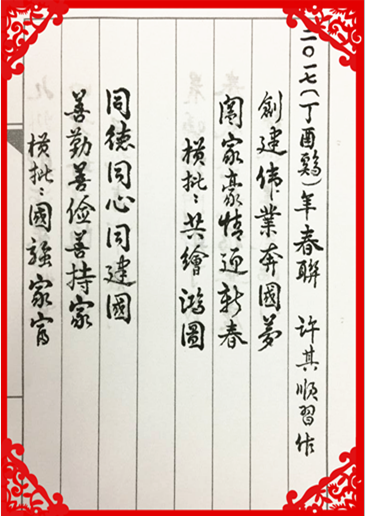 二〇一七(丁酉鷄)年春聯 许其顺習作
創建偉業奔國夢
闔家豪情迎新春
横批:共繪鴻圖
同德同心同建國
善勤善俭善持家
横批:國強家富